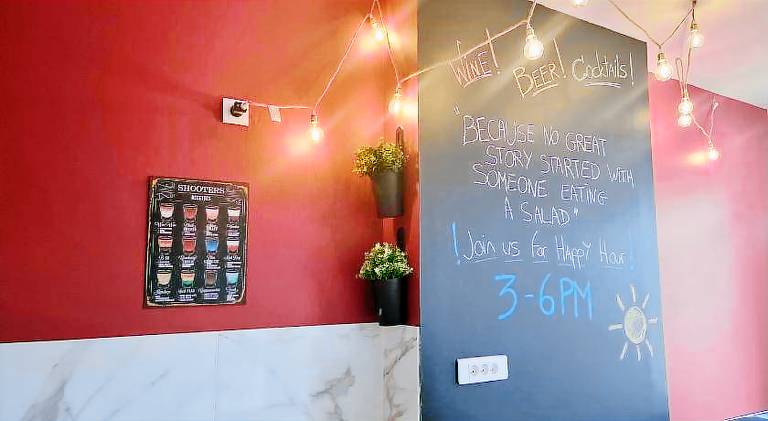 SHOOTERS
WINE! BEER! Cocktails!
"BECAUSE NO GREAT
STORY STARTED WITH
SOMEONE EATING
A SALAD"
! Join us for Happy Hour!
3-6PM